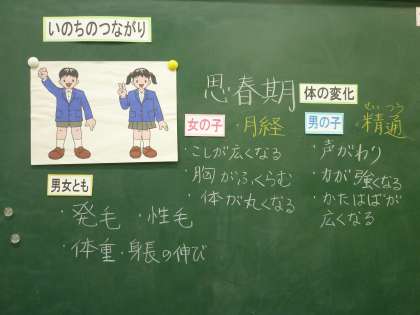 いのちのつながり
思春期 体の変化
女の子 ・月経
・こしが広くなる
・胸がふくらむ
・体が丸くなる
男の子 ・精通
せいつう
・声がわり
・力が強くなる
・かたはばが
広くなる
男女とも
・発毛 ・性毛
・体重・身長の伸び